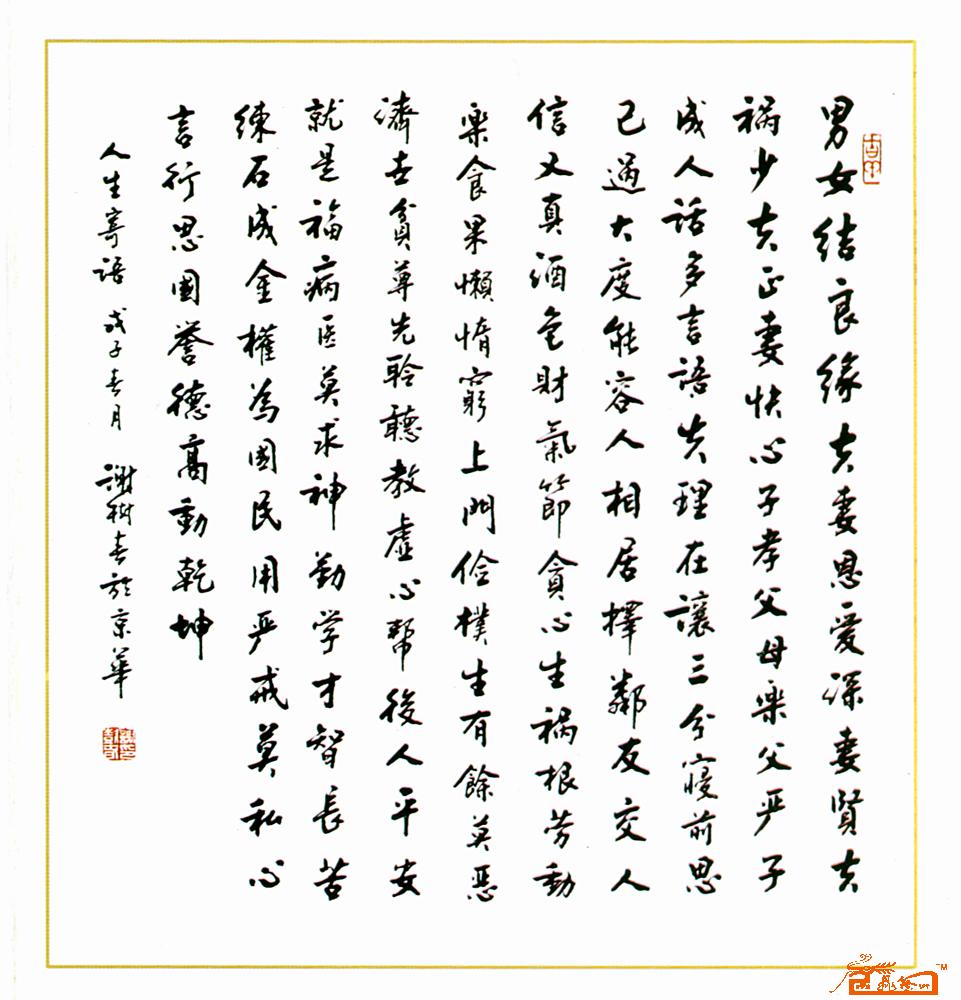 男女结良缘夫妻恩爱深妻賢夫
祸少夫正妻快心子孝父母楽父严子
成人話多言語失理在讓三分寢前思
已過大度能容人相居擇鄰友交人
信义真酒色財氣節貪心生祸根劳動
楽食果懶惰窮上門儉樸生有餘莫恶
濟世貧尊先聆聽教虚心帮後人平安
就是福病医莫求神勤学才智長苦
練石成金權為國民用严戒莫私心
言行思國誉德高動乾坤
人生寄语 戊子春月 謝樹春於京華